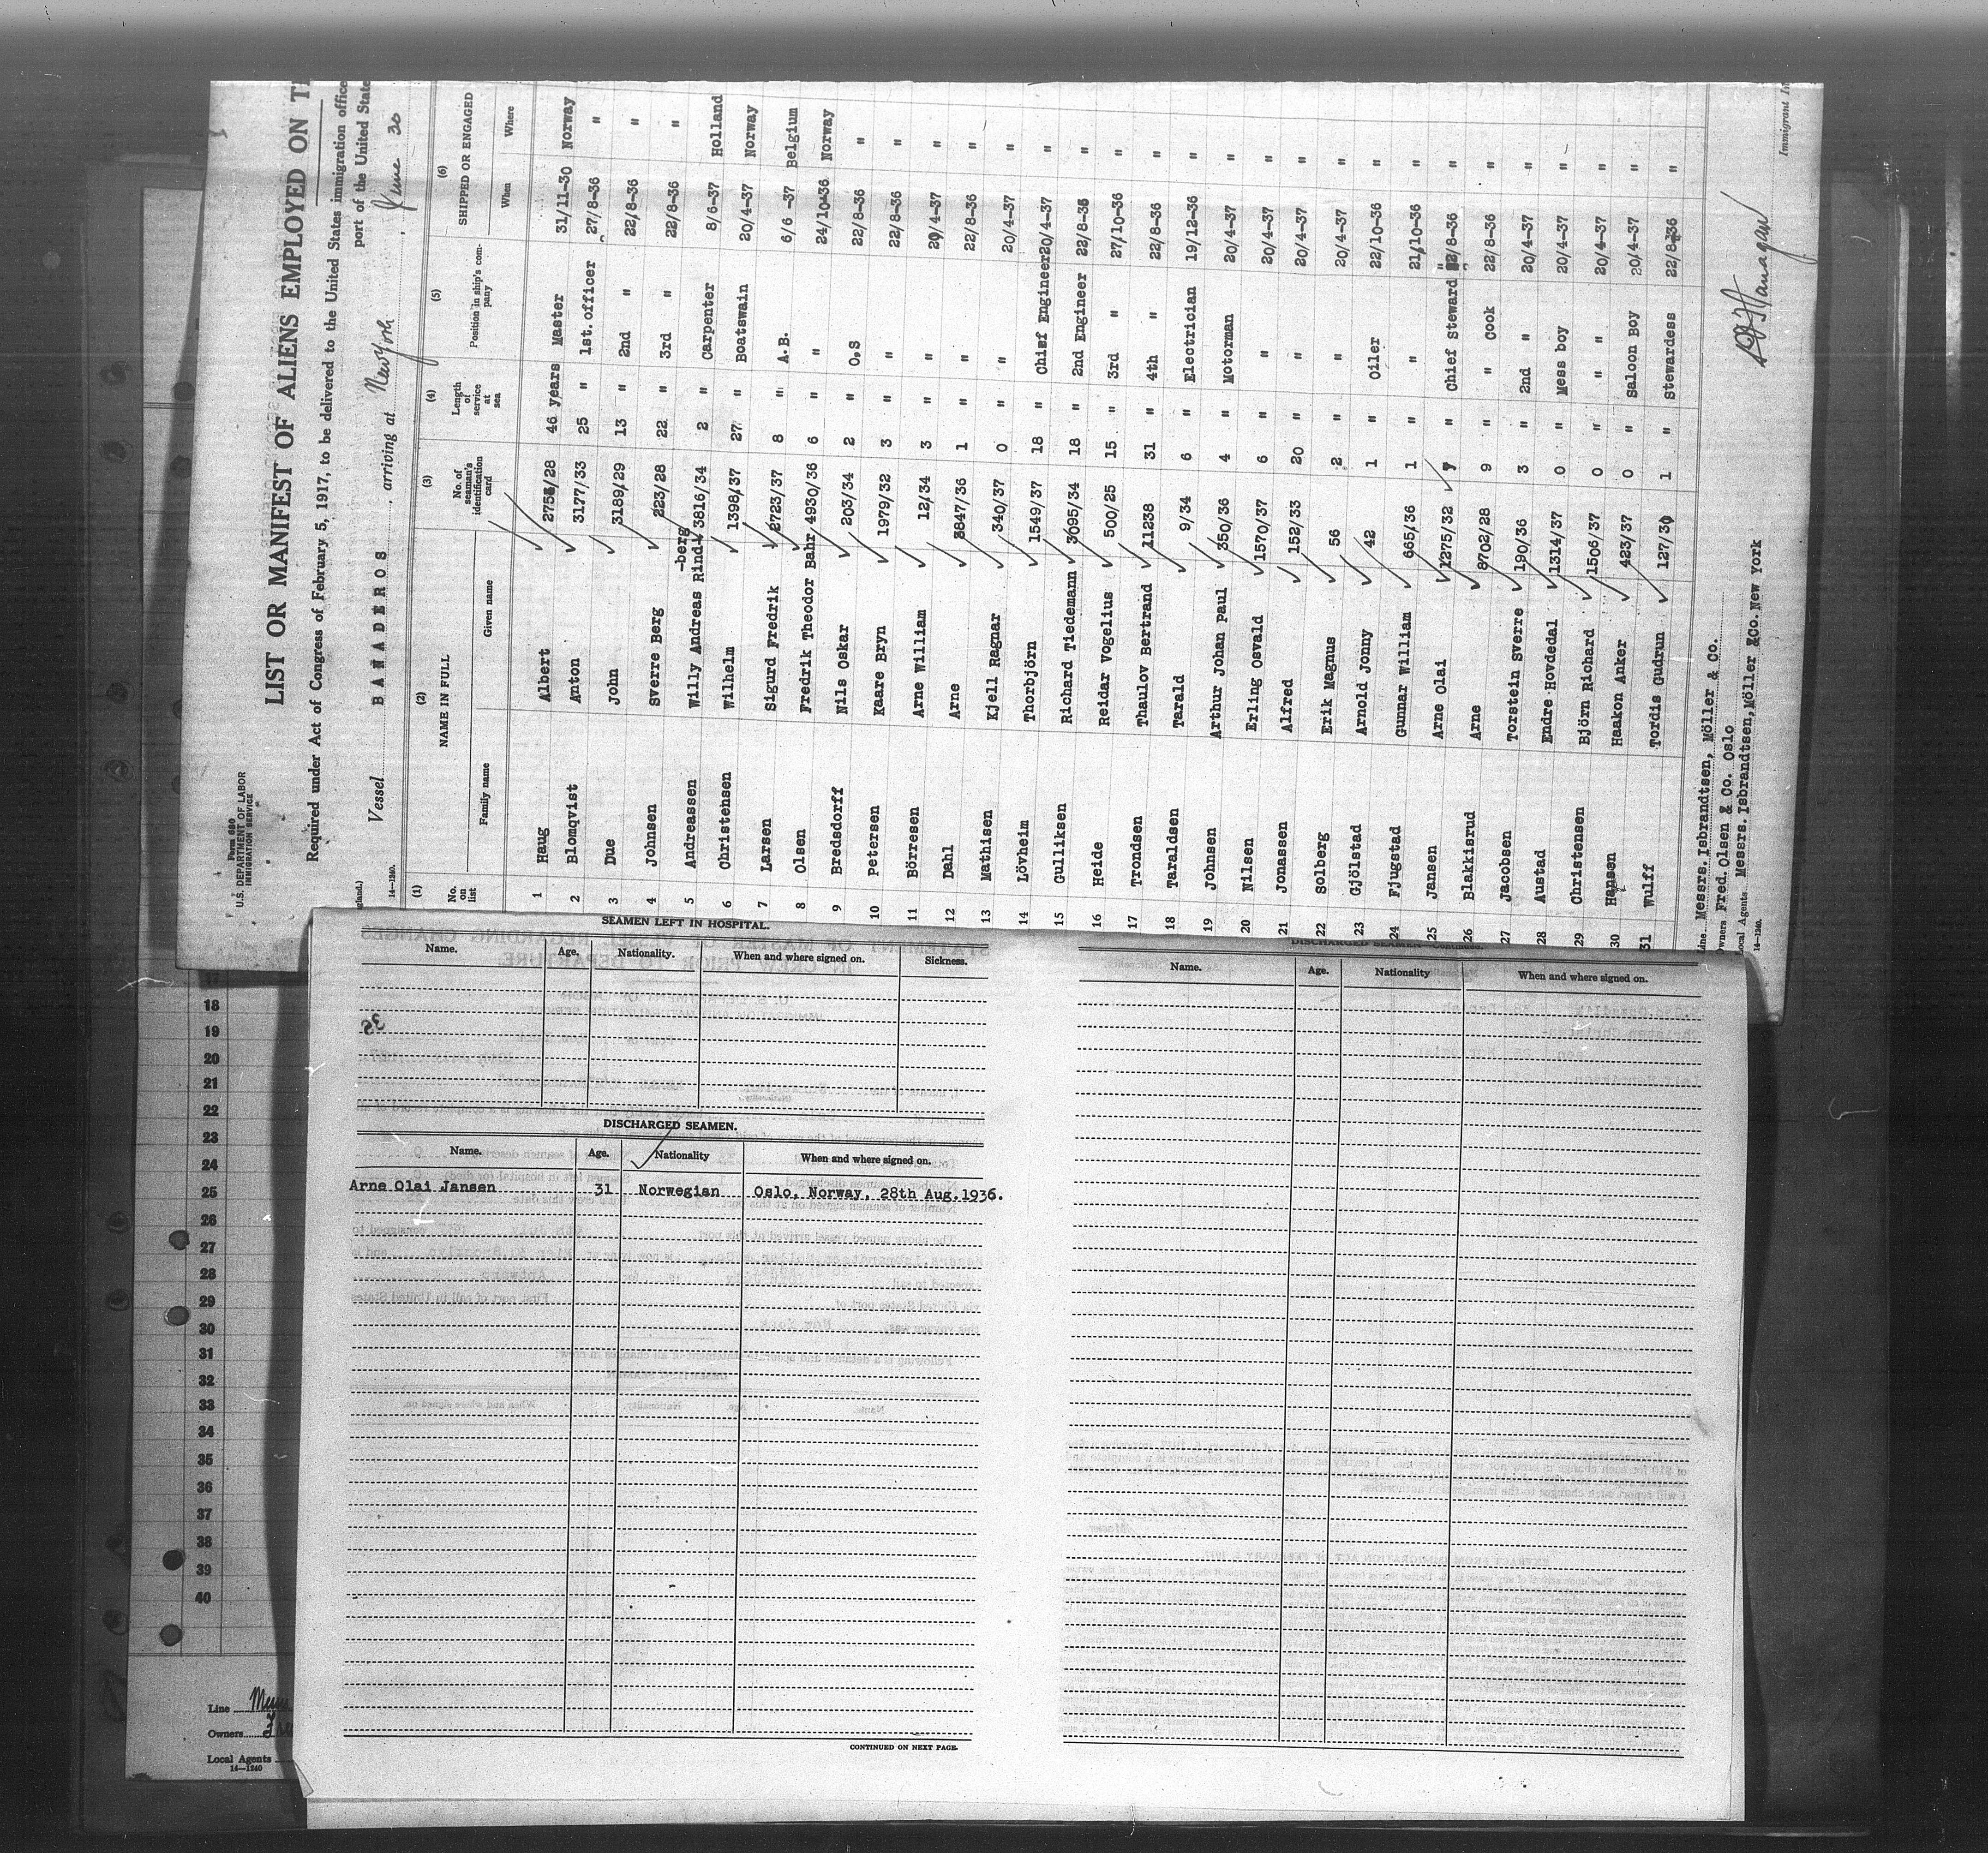 Form 680
U.S. DEPARTMENT OF LABOR
IMMIGRATION SERVICE
LIST OR MANIFEST OF ALIENS EMPLOYED ON
Required under Act of Congress of February 5, 1917, to be delivered to the United States immigration
port of the United
Vessel BAÑADEROS, arriving at New York, June 30
14—1240.
(1) (2) (3) (4) (5) (6)
No. on list NAME IN FULL Family name Given name No. of seaman's identification card Length of service at sea Position in ship's company SHIPPED OR ENGAGED When Where
1 Haug Albert 46 years Master 31/11-30 Norway
2 Blomqvist Anton 3177/33 25 " 1st.officer 27/8-36 "
3 Due John 3189/29 13 " 2nd " 22/8-36 "
4 Johnsen Sverre Berg 223/28 22 " 3rd " 22/8-36 "
5 Andreassen Willy Andreas Rind-berg 3816/34 2 " Carpenter 8/6-37 Holland
6 Christensen Wilhelm 1398/37 27 " Boatswain 20/4-37 Norway
7 Larsen Sigurd Fredrik 2723/37 8 " A.B. 6/6-37 Belgium
8 Olsen Fredrik Theodor Bahr 4930/36 6 " " 24/10-36 Norway
9 Bredsdorff Nils Oskar 203/34 2 " O.S 22/8-36 "
10 Petersen Kaare Bryn 1979/32 3 " " 22/8-36 "
11 Börresen Arne William 12/34 3 " " 20/4-37 "
12 Dahl Arne 3847/36 1 " " 22/8-36 "
13 Mathisen Kjell Ragnar 340/37 0 " " 20/4-37 "
14 Lövheim Thorbjörn 1549/37 18 " Chief Engineer 20/4-37 "
15 Gulliksen Richard Tiedemann 3095/34 18 " 2nd Engineer 22/8-36 "
16 Heide Reidar Vogelius 500/25 15 " 3rd " 27/10-36 "
17 Trondsen Thaulov Bertrand 11238 31 " 4th " 22/8-36 "
18 Taraldsen Tarald 9/34 6 " Electrician 19/12-36 "
19 Johnsen Arthur Johan Paul 350/36 4 " Motorman 20/4-37 "
20 Nilsen Erling Osvald 1570/37 6 " " 20/4-37 "
21 Jonassen Alfred 152/33 20 " " 20/4-37 "
22 Solberg Erik Magnus 56 2 " " 20/4-37 "
23 Gjölstad Arnold Jonny 42 1 " Oiler 22/10-36 "
24 Fjugstad Gunnar William 665/36 1 " " 21/10-36 "
25 Jansen Arne Olai 1275/32 7 " Chief Steward 22/8-36 "
26 Blakkisrud Arne 8702/28 9 " " Cook 22/8-36 "
27 Jacobsen Torstein Sverre 190/36 3 " 2nd " 20/4-37 "
28 Austad Endre Hovdedal 1314/37 0 " Mess boy 20/4-37 "
29 Christensen Björn Richard 1506/37 0 " " " 20/4-37 "
30 Hansen Haakon Anker 423/37 0 " Saloon Boy 20/4-37 "
31 Wulff Tordis Gudrun 127/30 1 " Stewardess 22/8-36 "
Line Messrs. Isbrandtsen, Möller & Co.
Owners Fred. Olsen & Co. Oslo
Local Agents Messrs. Isbrandtsen, Möller & Co. New York
14—1240
Immigrant
SEAMEN LEFT IN HOSPITAL.
Name. Age. Nationality. When and where signed on. Sickness.
DISCHARGED SEAMEN.
Name. Age. Nationality When and where signed on.
Arne Olai Jansen 31 Norwegian Oslo, Norway, 28th Aug.1936.
CONTINUED ON NEXT PAGE.
DISCHARGED SEAMEN—Continued.
Name. Age. Nationality When and where signed on.
17
18
19
20
21
22
23
24
25
26
27
28
29
30
31
32
33
34
35
36
37
38
39
40
Line
Owners
Local Agents
14—1240